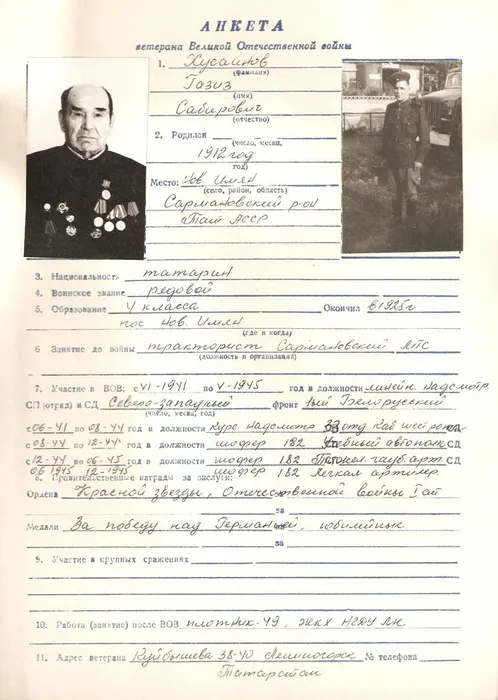 АНКЕТА
ветерана Великой Отечественной войны
1. Хусаинов
(фамилия)
Газиз
(имя)
Сабирович
(отчество)
2. Родился
(число, месяц,
1912 год
год)
Место: Нов. Имян
(село, район, область)
Сармановский р-он
Тат АССР
3. Национальность татарин
4. Воинское звание редовой
5. Образование 4 класса Окончил в 1925 г
пос Нов. Имян
(где и когда)
6 Занятие до войны тракторист Сармановский МТС
(должность и организация)
7. Участие в ВОВ: с VI-1941 по V-1945 год в должности линейн. надсмотр
СП (отряд) и СД Северо-западный фронт 1ый Белорусский
(число, месяц, год)
с 06-41 по 08-44 год в должности курс. надсмотр 33 отд. каб
с 08-44 по 12-44 год в должности шофер 182 Учебный автополк СД
с 12-44 по 06-45 год в должности шофер 182 гауб. арт. СД
06 1945 12-1945 шофер 182 легкая артилер
8. Правительственные награды за заслуги:
Ордена Красной звезды, Отечественной войны I
за
Медали За победу над Германией, юбилийные
за
9. Участие в крупных сражениях
10. Работа (занятие) после ВОВ плотник-49, ЖКХ НГДУ ЛН
11. Адрес ветерана Куйбышева 38-40 Лениногорск № телефона
Татарстан